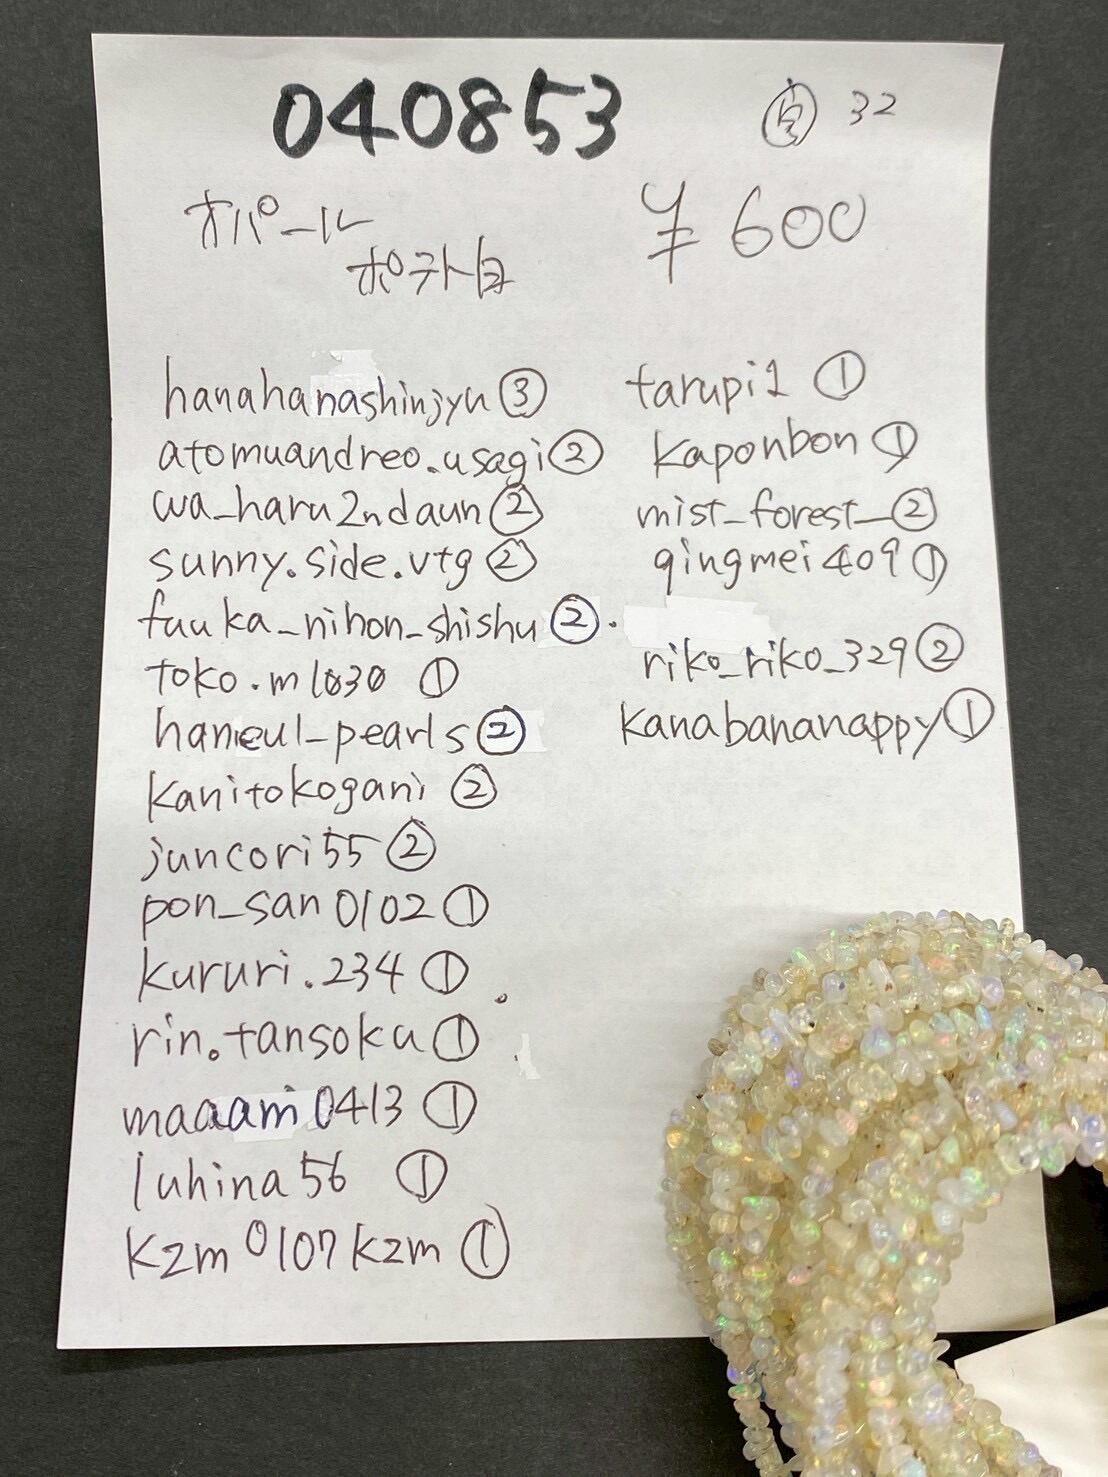 040853
32
オパール
ポテト
¥600
hanahanashinjyu ③
atomuandreo.usagi ②
wa_haru2ndaun ②
sunny.side.vtg ②
fuuka_nihon_shishu ②
toko.m1030 ①
haneul_pearls ②
kanitokogani ②
juncori55 ②
pon_san0102 ①
kururi.234 ①
rin.tansoku ①
maaami0413 ①
luhina56 ①
kzm0107kzm ①
tarupi1 ①
kaponbon ①
mist_forest_ ②
qingmei409 ①
riko_riko_329 ②
kanabananappy ①